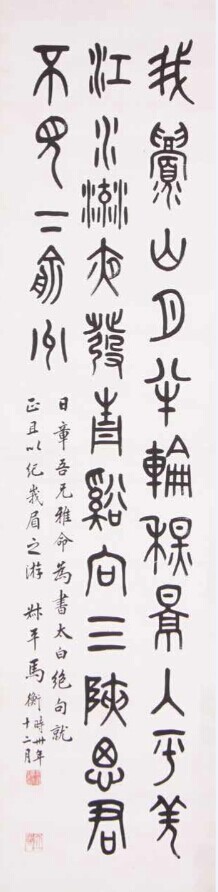 我眉山月半輪秋景入平羌
江水流夜發青谿向三陝思君
不見下俞州
日章吾兄雅命為書太白絕句就
正且以紀峩眉之游 叔平馬衡 時卅年
十二月